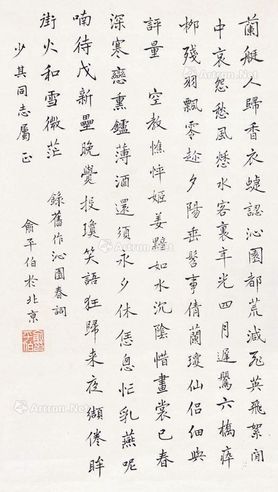 蘭艇人歸香衣蛺認沁園都荒減飛英飛絮閒
中哀怨愁風愁水客裏年光四月遲鶯六橋瘁
柳殘羽飄零趁夕陽垂髫事倩蘭瓊仙侶細與
評量 空教憔悴姬姜黯如水沉陰惜畫裳已春
深寒戀熏鑪薄酒還須永夕休恁息忙乳燕呢
喃待戊新壘晚覺投瓊笑語狂歸來夜纈倦眸
街火和雪微茫
錄舊作沁園春詞
少其同志屬正
俞平伯於北京